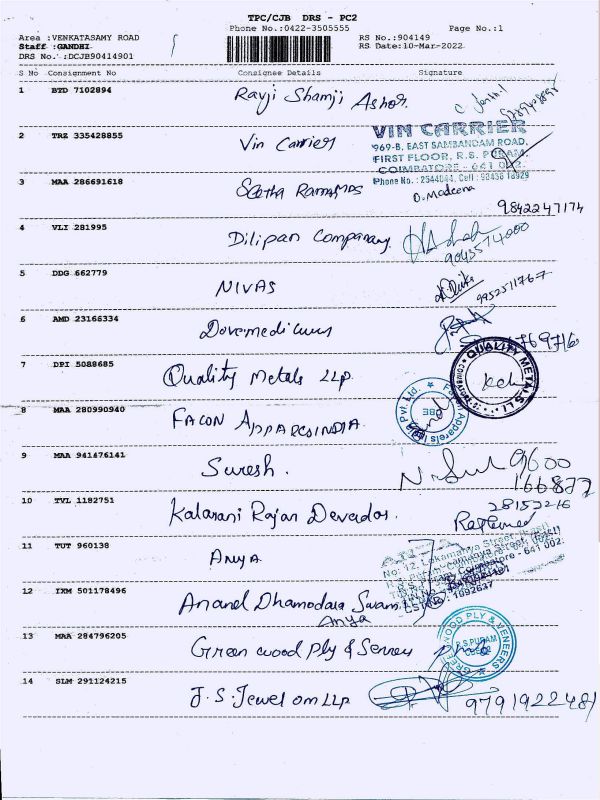 TPC/CJB DRS - PC2
Phone No.:0422-3505555 Page No.:1
Area :VENKATASAMY ROAD RS No.:904149
Staff :GANDHI RS Date:10-Mar-2022
DRS No. :DCJB90414901
S No Consignment No Consignee Details Signature
1 BTD 7102894 Ravji Shamji Ashor.
2 TRZ 335428855 Vin Carrier
VIN CARRIER
969-B, EAST SAMBANDAM ROAD,
FIRST FLOOR, R.S. PURAM,
COIMBATORE - 641 002.
3 MAA 286691618 Seetha Ramamas
Phone No. : 2544044, Cell : 98438 18929
O. Madeena
9842247174
4 VLI 281995 Dilipan Company
9043574000
5 DDG 662779 NIVAS
9952511767
6 AMD 23166334
769716
7 DPI 5088685 Quality Metals LLP.
QUALITY METALS LLP
8 MAA 280990940 FACON APPARELSINDIA
CBE
9 MAA 941476141 Suresh.
9600
166877
10 TVL 1182751 Kalarani Rajan Devados.
28152216
11 TUT 960138 ANYA
12 IXM 501178496 Anand Dhamodara Swam
Anya
13 MAA 284796205 Green wood Ply &
GREENWOOD PLY & VENEERS
R.S.PURAM
14 SLM 291124215 J.S.Jewel om LLP
9791922481